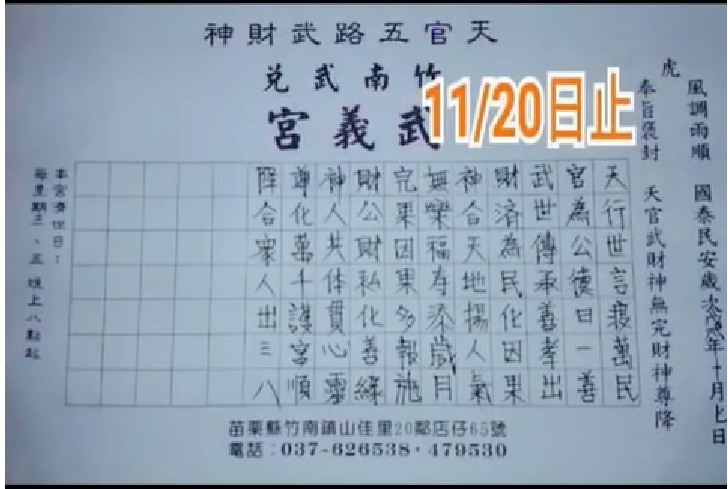 天官五路武財神
竹南武兌
武義宮
11/20日止
虎
風調雨順 國泰民安歲次戊戌年十月七日
奉旨褒封 天官武財神無完財神尊降
天行世言寢萬民
官為公德日一善
武世傳承善孝出
財濟為民化因果
神合天地揚人氣
無樂福壽添歲月
完果因果多報施
財公財私化善緣
神人共体貫心靈
尊化萬千護宮順
降合家人出三八
本宮濟世日：
每星期三、五 晚上八點起
苗栗縣竹南鎮山佳里20鄰店仔65號
電話：037-626538·479530